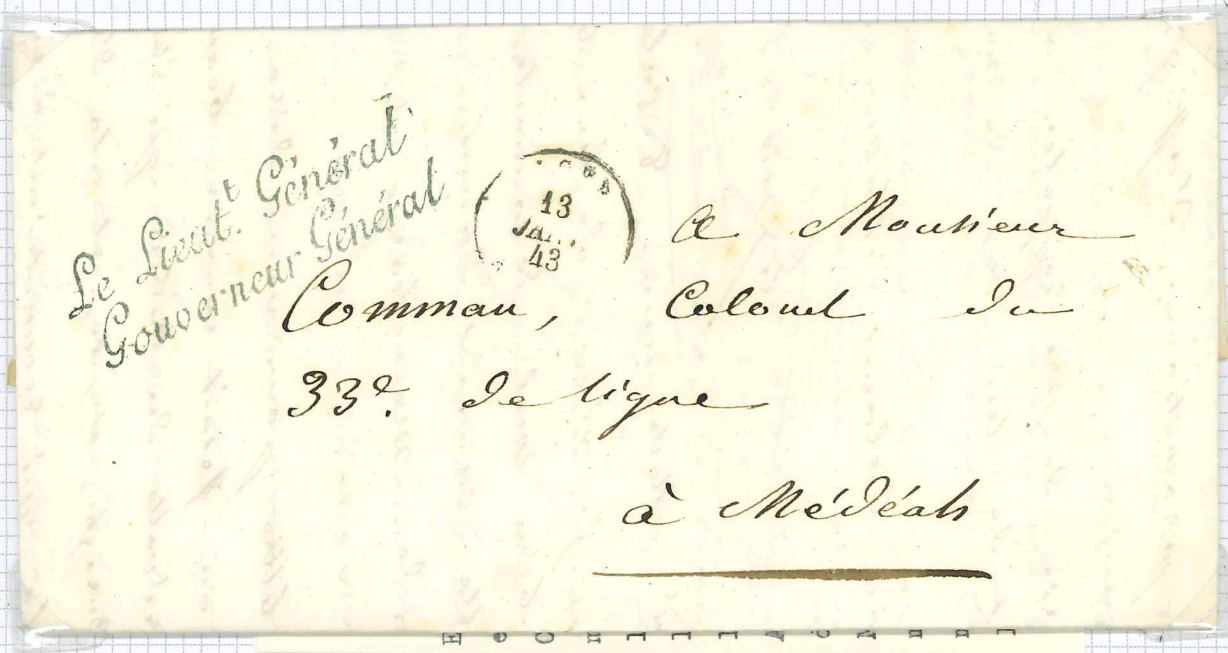 Le Lieut.t Général
Gouverneur Général
13
43
A Monsieur
Comman, Colonel du
33e. de ligne
à Médéah